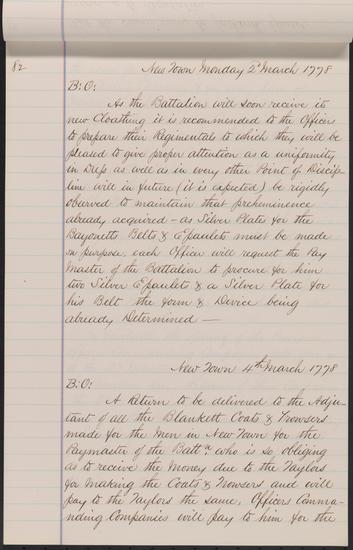 82
New Town Monday 2d March 1778
B: O:
As the Battalion will soon receive its
new Cloathing it is recommended to the Officers
to prepare their Regimentals to which they will be
pleased to give proper attention as a uniformity
in Dress as well as in every other Point of Discip-
line will in future (it is expected) be rigidly
observed to maintain that prehminence
already acquired - as Silver Plate for the
Bayonetts Belts & Epaulets must be made
on purpose, each Officer will request the Pay
Master of the Battalion to procure for him
two Silver Epaulets & a Silver Plate for
his Belt the form & Device being
already Determined —
New Town 4th March 1778
B: O:
A Return to be delivered to the Adju-
tant of all the Blankett Coats & Trowsers
made for the Men in New Town for the
Paymaster of the Battn who is so obliging
as to receive the Money due to the Taylors
for making the Coats & Trowsers and will
pay to the Taylors the same, Officers Comma-
nding Companies will pay to him for the